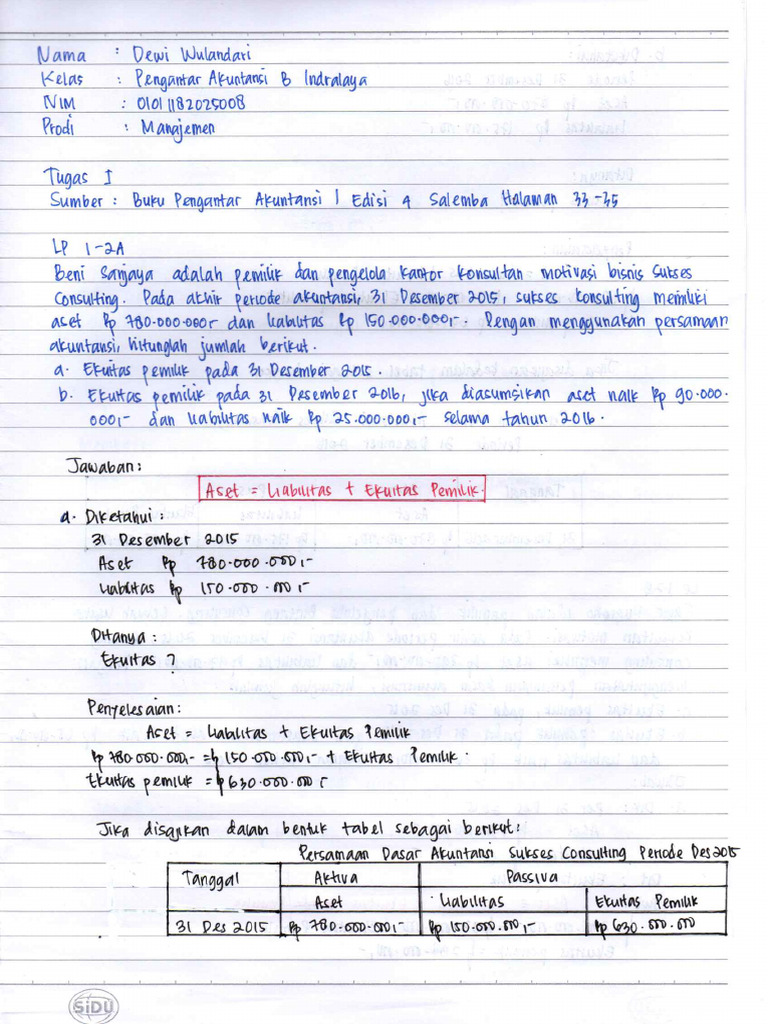 Nama : Dewi Wulandari
Kelas : Pengantar Akuntansi B Indralaya
NIM : 01011182025008
Prodi : Manajemen
Tugas I
Sumber : Buku Pengantar Akuntansi 1 Edisi 4 Salemba Halaman 33-35
LP 1-2A
Beni Sanjaya adalah pemilik dan pengelola kantor konsultan motivasi bisnis sukses
Consulting. Pada akhir periode akuntansi, 31 Desember 2015, sukses konsulting memiliki
aset Rp 780.000.000,- dan liabilitas Rp 150.000.000,-. Dengan menggunakan persamaan
akuntansi, hitunglah jumlah berikut.
a. Ekuitas pemilik pada 31 Desember 2015.
b. Ekuitas pemilik pada 31 Desember 2016, jika diasumsikan aset naik Rp 90.000.
000,- dan liabilitas naik Rp 25.000.000,- selama tahun 2016.
Jawaban:
Aset = Liabilitas + Ekuitas Pemilik.
a. Diketahui :
31 Desember 2015
Aset Rp 780.000.000,-
Liabilitas Rp 150.000.000,-
Ditanya :
Ekuitas ?
Penyelesaian:
Aset = Liabilitas + Ekuitas Pemilik
Rp 780.000.000,- = Rp 150.000.000,- + Ekuitas Pemilik.
Ekuitas pemilik = Rp 630.000.000,-
Jika disajikan dalam bentuk tabel sebagai berikut:
Persamaan Dasar Akuntansi Sukses Consulting Periode Des 2015
Tanggal Aktiva Passiva
Aset Liabilitas Ekuitas Pemilik
31 Des 2015 Rp 780.000.000,- Rp 150.000.000,- Rp 630.000.000
SiDU